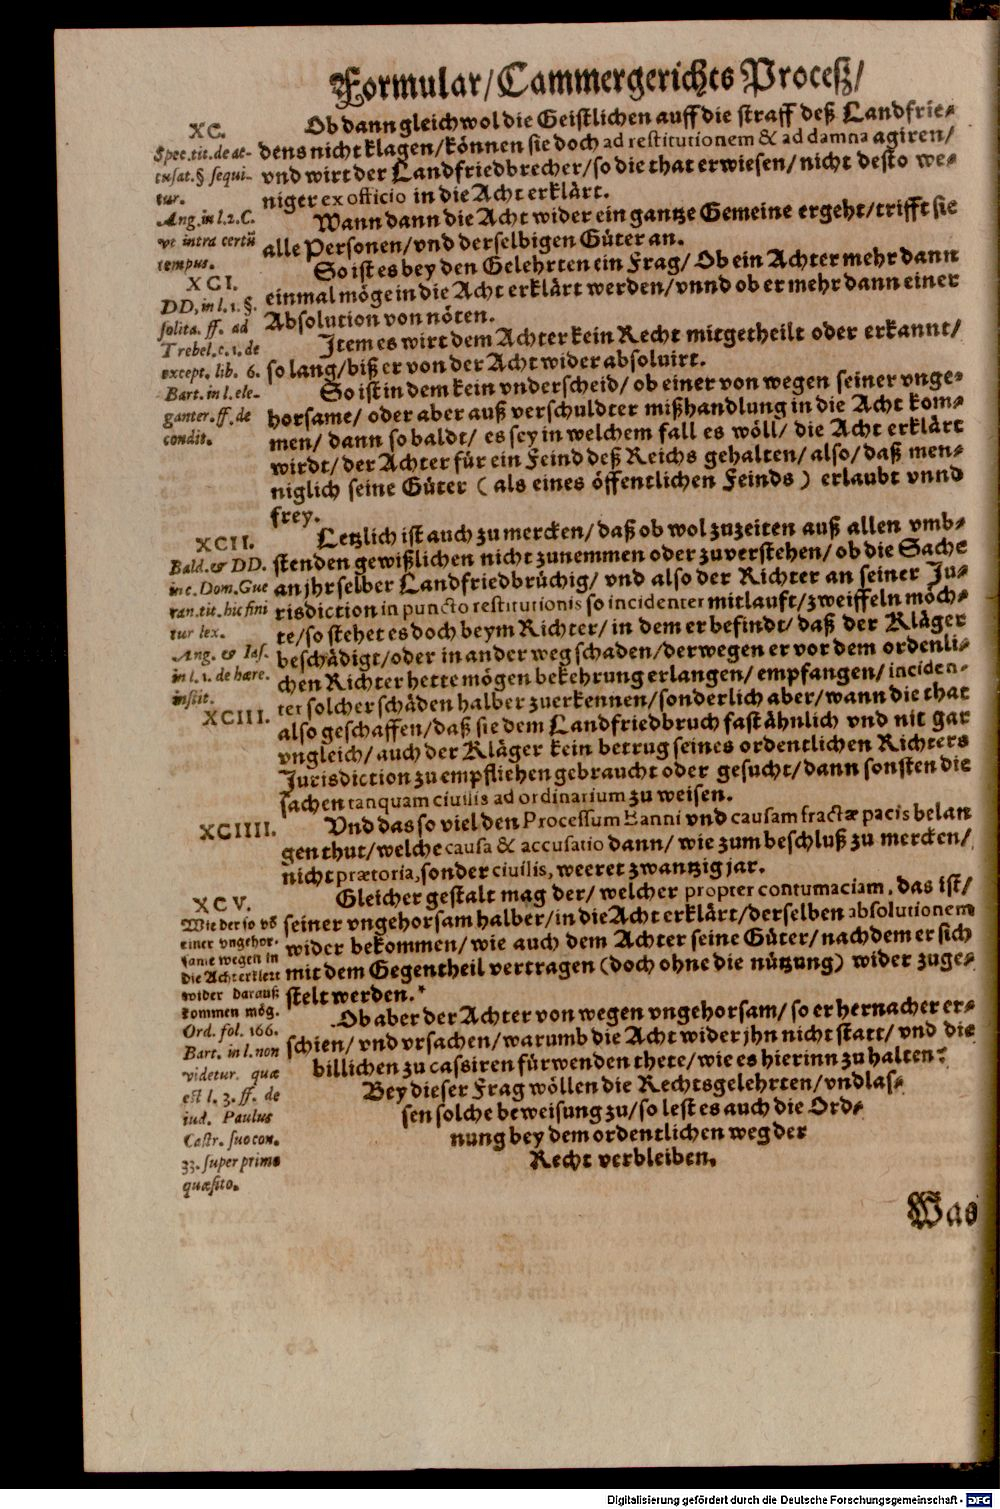 Formular/Cammergerichts Proceß/
XC.
Spec.tit.de ac-
cusat.§ sequi-
tur.
Ang.in l.2.C.
ve intra certũ
tempus.
XCI.
DD, in l.1.§.
solita. ff. ad
Trebel.c.1.de
except. lib. 6.
Bart.in l.ele-
ganter.ff.de
condit.
XCII.
Bald.& DD.
in c.Dom.Gue
ran.tit.hic fini
tur lex.
Ang. & Ias.
in l.1. de hære.
instit.
XCIII.
XCIIII.
XCV.
Wie der so võ
einer vngehor-
same wegen in
die Acht erklert
wider darauß
kommen mög.
Ord. fol. 166.
Bart. in l. non
videtur. quæ
est l. 3. ff. de
iud. Paulus
Castr. suo con.
33. super primo
quæsito.
Ob dann gleichwol die Geistlichen auff die straff deß Landfrie-
dens nicht klagen/können sie doch ad restitutionem & ad damna agiren/
vnd wirt der Landfriedbrecher/so die that erwiesen/ nicht desto we-
niger ex officio in die Acht erklärt.
Wann dann die Acht wider ein gantze Gemeine ergeht/trifft sie
alle Personen/vnd derselbigen Güter an.
So ist es bey den Gelehrten ein Frag/ Ob ein Achter mehr dann
einmal möge in die Acht erklärt werden/vnnd ob er mehr dann einer
Absolution von nöten.
Jtem es wirt dem Achter kein Recht mitgetheilt oder erkannt/
so lang/biß er von der Acht wider absoluirt.
So ist in dem kein vnderscheid/ ob einer von wegen seiner vnge-
horsame/ oder aber auß verschuldter mißhandlung in die Acht kom-
men/ dann so baldt/ es sey in welchem fall es wöll/ die Acht erklärt
wirdt/der Achter für ein Feind deß Reichs gehalten/ also/daß men-
niglich seine Güter ( als eines öffentlichen Feinds ) erlaubt vnnd
frey.
Letzlich ist auch zu mercken/daß ob wol zuzeiten auß allen vmb-
stenden gewißlichen nicht zunemmen oder zuverstehen/ ob die Sache
an jhr selber Landfriedbrüchig/ vnd also der Richter an seiner Ju-
risdiction in puncto restitutionis so incidenter mitlauft/zweiffeln möch-
te/so stehet es doch beym Richter/ in dem er befindt/ daß der Kläger
beschädigt/oder in ander weg schaden/derwegen er vor dem ordenli-
chen Richter hette mögen bekehrung erlangen/ empfangen/ inciden-
ter solcher schäden halber zuerkennen/sonderlich aber/wann die that
also geschaffen/daß sie dem Landfriedbruch fast ähnlich vnd nit gar
vngleich/ auch der Kläger kein betrug seines ordentlichen Richters
Jurisdiction zu empfliehen gebraucht oder gesucht/dann sonsten die
sachen tanquam ciuilis ad ordinarium zu weisen.
Vnd das so viel den Processum Banni vnd causam fractæ pacis belan
gen thut/welche causa & accusatio dann/ wie zum beschluß zu mercken/
nicht prætoria,sonder ciuilis, weeret zwantzig jar.
Gleicher gestalt mag der/ welcher propter contumaciam, das ist/
seiner vngehorsam halber/in die Acht erklärt/derselben absolutionem
wider bekommen/ wie auch dem Achter seine Güter/nachdem er sich
mit dem Gegentheil vertragen (doch ohne die nützung) wider zuge-
stelt werden.
Ob aber der Achter von wegen vngehorsam/ so er hernacher er-
schien/ vnd vrsachen/warumb die Acht wider jhn nicht statt/ vnd die
billichen zu cassiren fürwenden thete/wie es hierinn zu halten?
Bey dieser Frag wöllen die Rechtsgelehrten/vndlas-
sen solche beweisung zu/so lest es auch die Ord-
nung bey dem ordentlichen weg der
Recht verbleiben.
Was
Digitalisierung gefördert durch die Deutsche Forschungsgemeinschaft - DFG